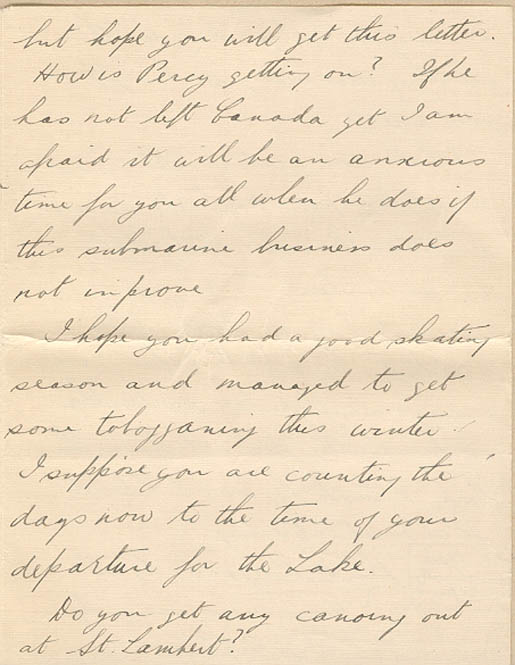 but hope you will get this letter.
How is Percy getting on? If he
has not left Canada yet I am
afraid it will be an anxious
time for you all when he does if
this submarine business does
not improve
I hope you had a good skating
season and managed to get
some tobogganing this winter.
I suppose you are counting the
days now to the time of your
departure for the Lake.
Do you get any canoing out
at St. Lambert?